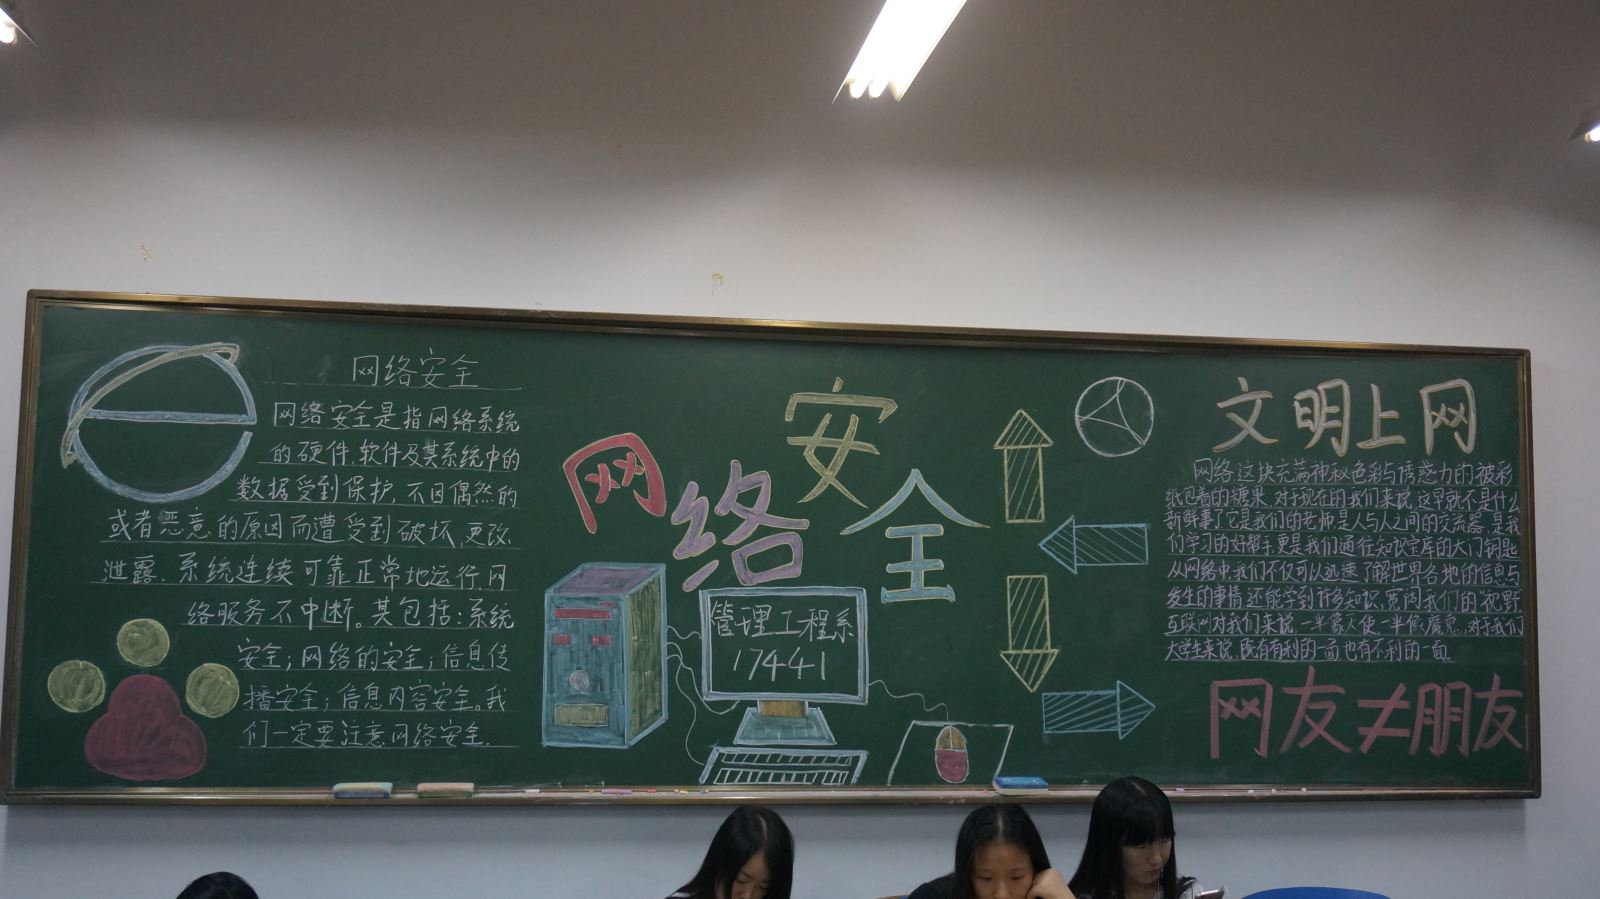 网络安全
网络安全是指网络系统
的硬件、软件及其系统中的
数据受到保护,不因偶然的
或者恶意的原因而遭受到破坏、更改、
泄露,系统连续可靠正常地运行,网
络服务不中断。其包括:系统
安全;网络的安全;信息传
播安全;信息内容安全。我
们一定要注意网络安全。
网络安全
管理工程系
17441
文明上网
网络,这块充满神秘色彩与诱惑力的被彩
纸包着的糖果,对于现在的我们来说,这早就不是什么
新鲜事了它是我们的老师,是人与人之间的交流器,是我
们学习的好帮手,更是我们通往知识宝库的大门钥匙
从网络中我们不仅可以迅速了解世界各地的信息与
发生的事情,还能学到许多知识,宽阔我们的“视野”,
互联网对我们来说,一半像天使一半像魔鬼,对于我们
大学生来说,既有有利的一面也有不利的一面。
网友≠朋友